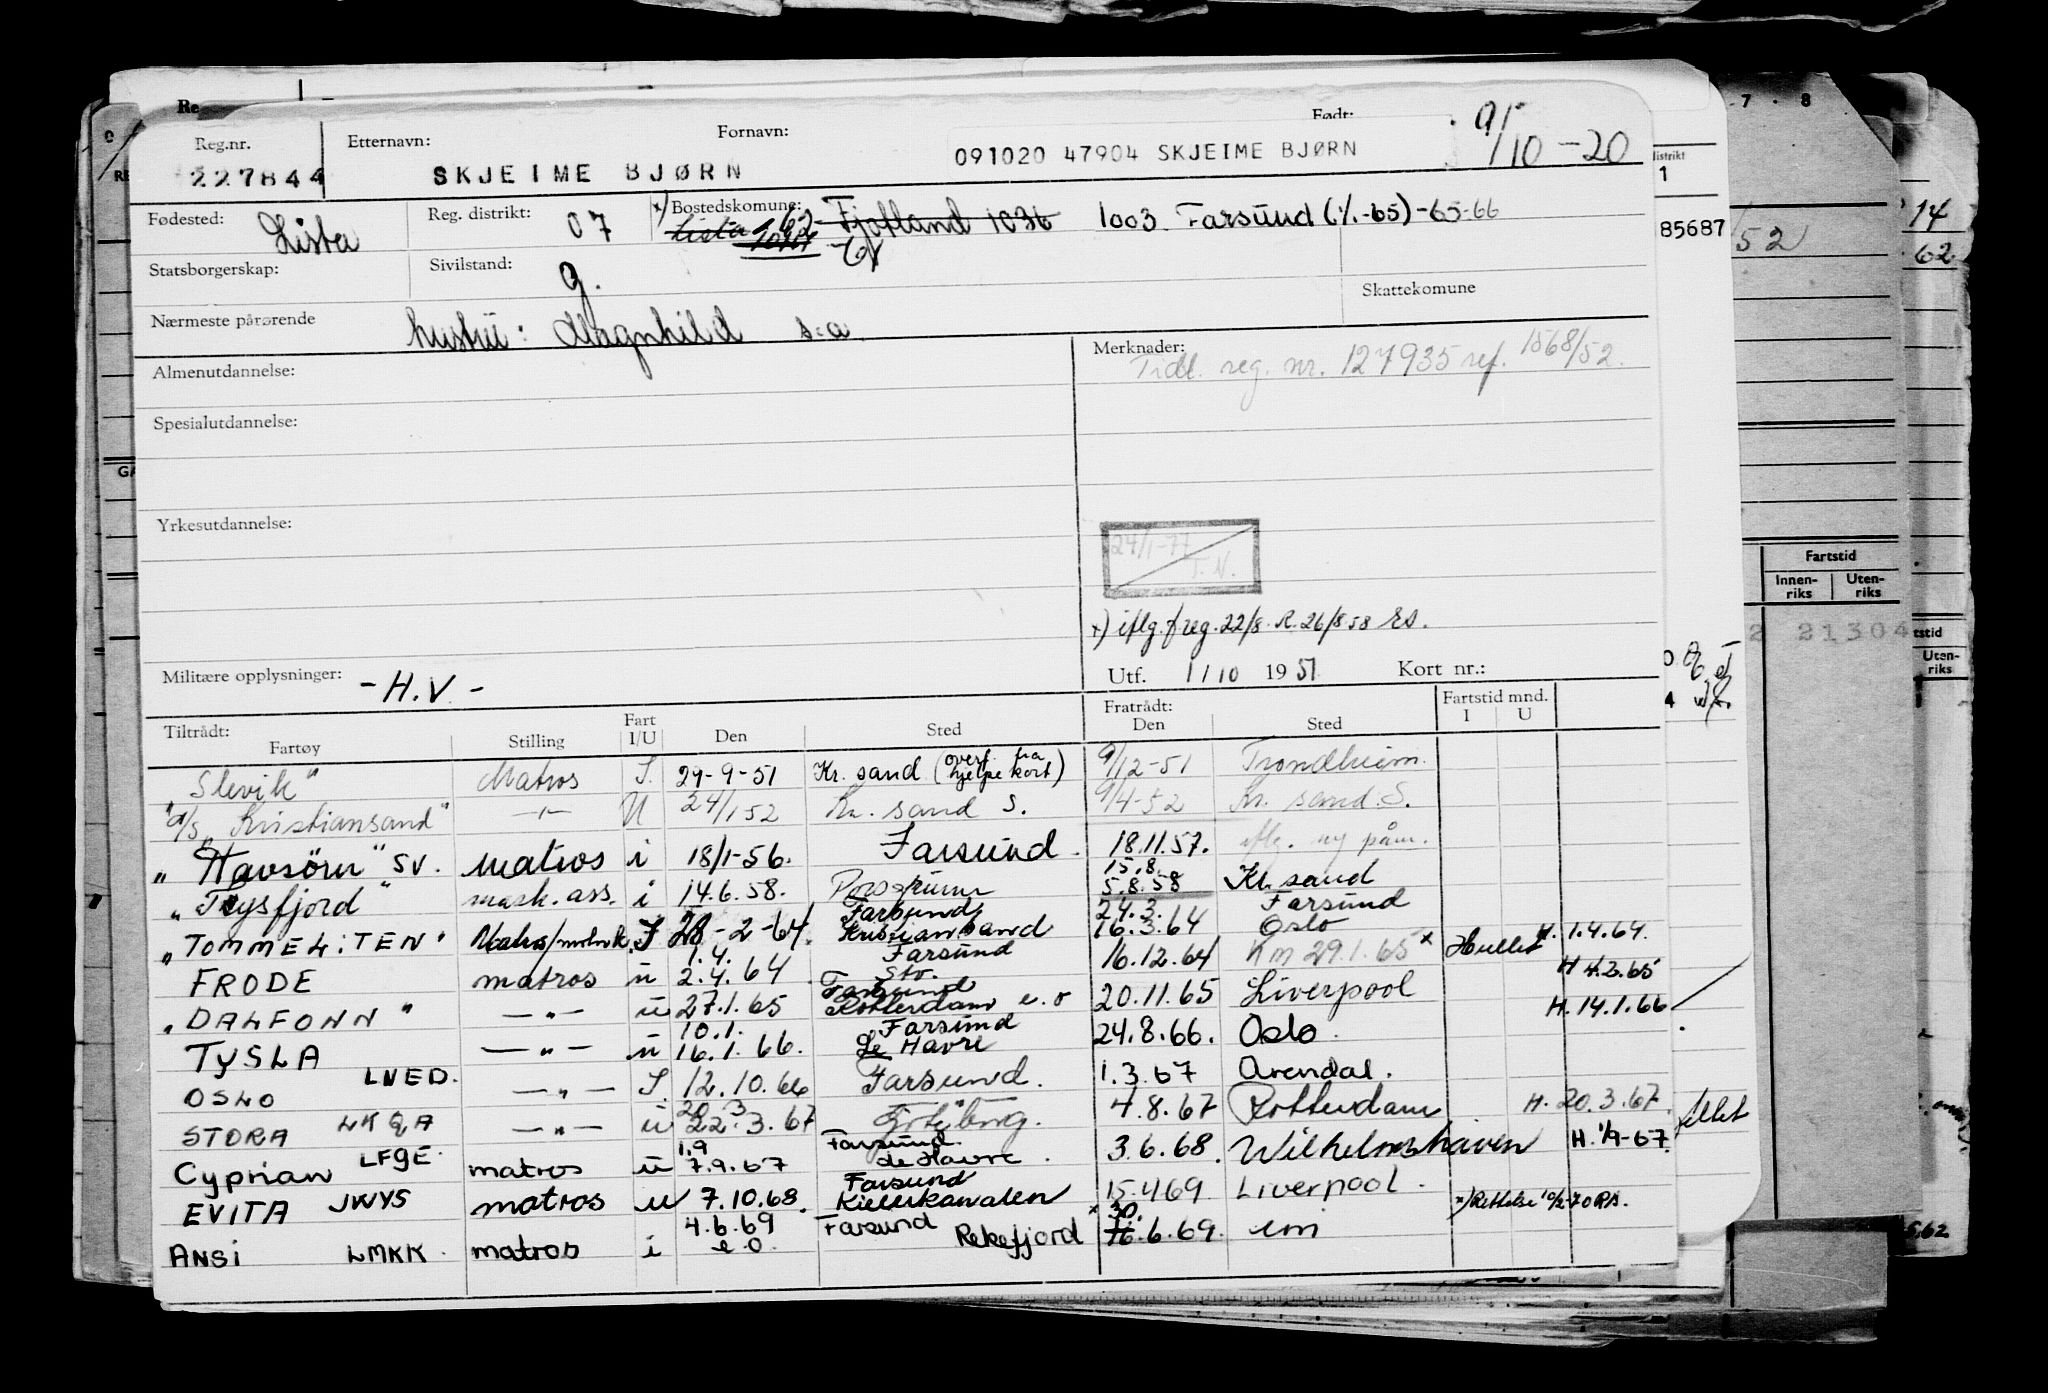 Reg.nr. Etternavn: Fornavn: Født:
227844 SKJEIME BJØRN 091020 47904 SKJEIME BJØRN 9/10-20
Fødested: Lista Reg. distrikt: 07 x) Bostedskomune: Lista Fjotland 1036 1003 Farsund (1/1-65)-65-66
Statsborgerskap: Sivilstand: g.
Skattekomune
Nærmeste pårørende hustru: Magnhild s.a.
Almenutdannelse: Merknader: Tidl. reg. nr. 127935 ref. 1568/52.
Spesialutdannelse:
Yrkesutdannelse:
24/1-77 T.N.
x) iflg. f.reg. 22/8. R. 26/8 58 RS.
Militære opplysninger: -H.V- Utf. 1/10 1951 Kort nr.:
Tiltrådt: Fartøy Stilling Fart I/U Den Sted Fratrådt: Den Sted Fartstid mnd. I U
"Slevik" Matros I. 29-9-51 Kr. sand (overf. fra hjelpekort) 9/12-51 Trondheim.
"a/s Kristiansand" -"- U 24/1 52 Kr. sand S. 9/4-52 Kr. sand. S.
"Havsørn" SV. matros i 18/1-56. Farsund. 18.11.57. iflg. ny påm.
15.8.
"Tysfjord" mask. ass. i 14.6.58. Porsgrunn 5.8.58 Kr. sand
Farsund 24.3. Farsund
"TOMMELiTEN" Matros/motork. I 28-2-64. Kristiansand 16.3.64 Oslo H. 1.4.64.
1.4. Farsund
FRODE matros u 2.4.64 Stv. 16.12.64 Km 29.1.65 x Hullet H 4.2.65
Farsund
"DALFONN" -"- u 27.1.65 Rotterdam e.o 20.11.65 Liverpool H. 14.1.66
10.1. Farsund
TYSLA -"- u 16.1.66. Le Havre 24.8.66. Oslo.
OSLO LNED. -"- I. 12.10.66 Farsund. 1.3.67 Arendal.
20.3
STORA LKQA -"- u 22.3.67 Gøteborg. 4.8.67 Rotterdam H. 20.3.67.
1.9 Farsund
Cyprian LFGE. matros u 7.9.67 Le Havre. 3.6.68. Wilhelmshaven H. 1/9-67.
Farsund
EVITA JWYS matros u 7.10.68. Kielerkanalen 15.4.69 Liverpool. x) Rettelse 10/2-70 RS.
4.6.69 Farsund x 30.
ANSI LMKK. matros i e.o. Rekefjord 16.6.69. em
distrikt
1
85687
52
14
62
7 . 8
Fartstid
Innenriks Utenriks
2 21304
Utenriks